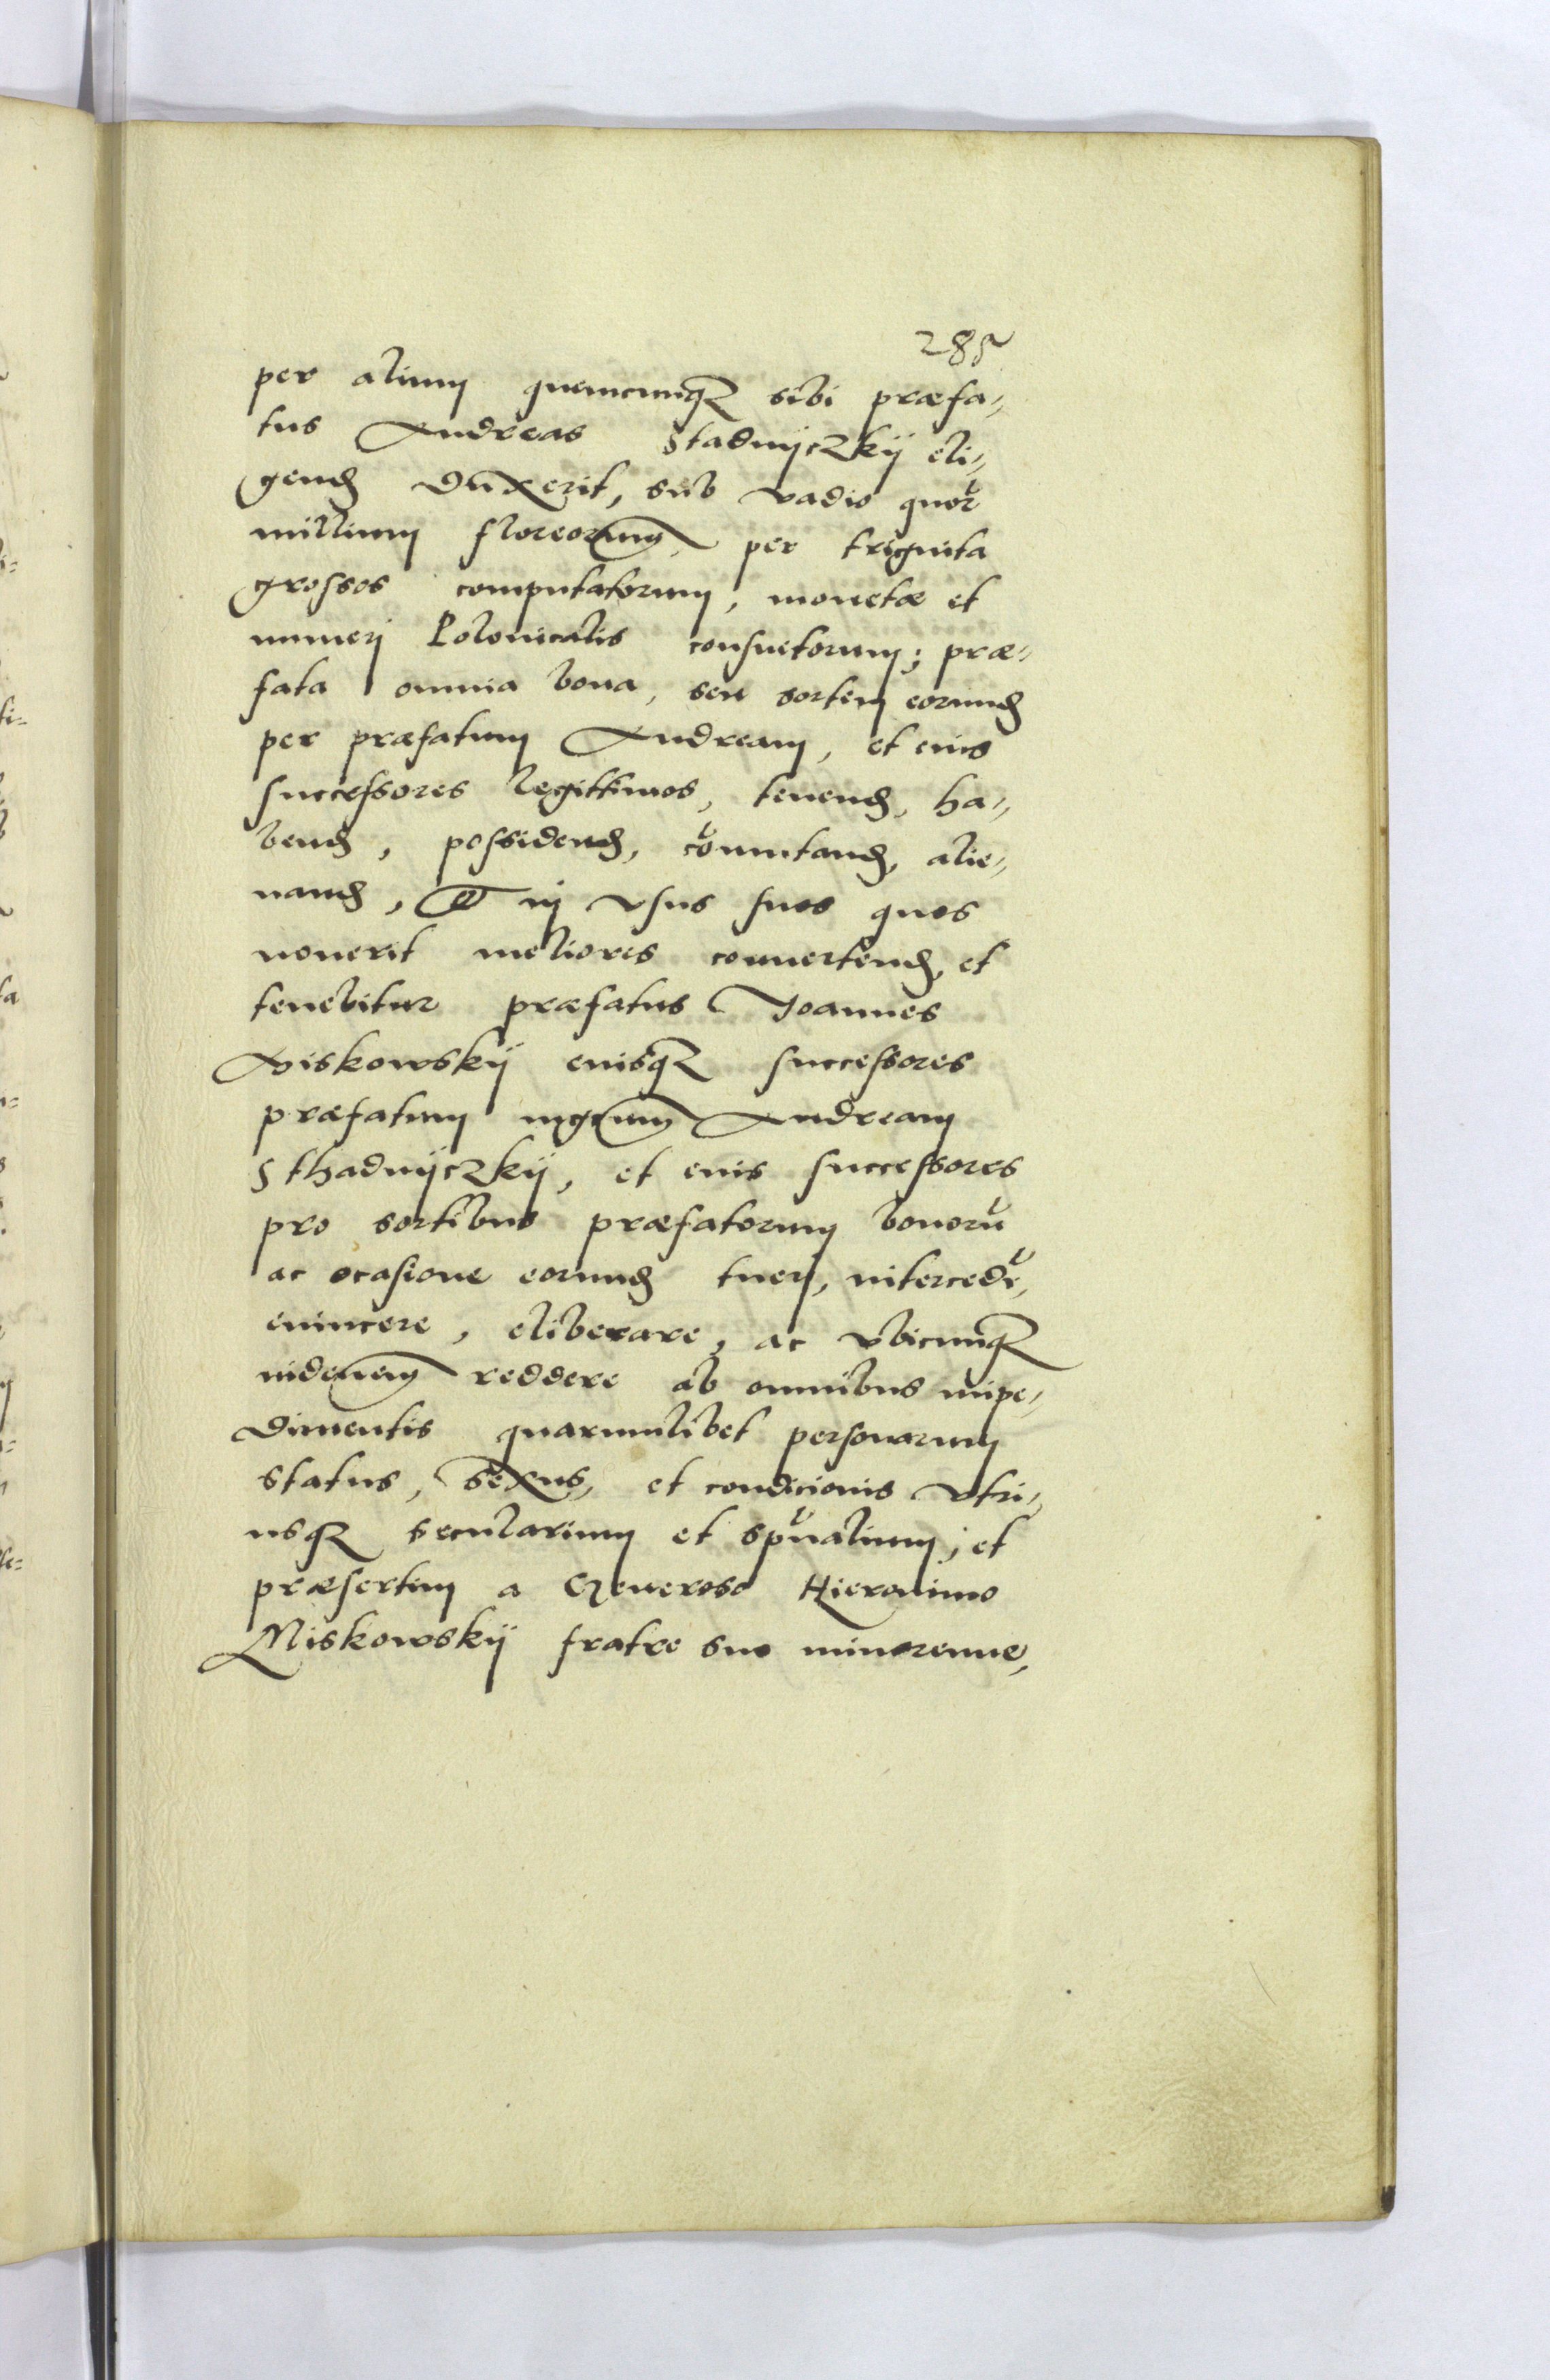 285
per alium quemcumqꝫ sibi præfa-
tus Andreas Stadnÿczkÿ eli-
gend duxerit, sub vadio quor
millium floreorum per triginta
grossos computatorum, monetæ et
numerj Polonicalis consuetorum; præ-
fata omnia bona, seu sortem eorund
per præfatum Andream, et eius
successores legittimos, tenend, ha-
bend, possidend, comutand, alie-
nand, Et in vsus suos quos
nouerit meliores conuertend, et
tenebitur præfatus Joannes
Miskowskÿ eiusqꝫ successores
præfatum mgcum Andream
Sthadnÿczkÿ, et eius successores
pro sortibus præfatorum bonorũ
ac ocasione eorund tuerj, intercedr,
euincere, eliberare, ac vbicunqꝫ
indemem reddere ab omnibus impe-
dimentis quarumlibet personarum
status, sexus, et condicionis vtri-
usqꝫ secularium et spũalium; et
præsertim a Generoso Hieronimo
Miskowskÿ fratre suo minorenne,